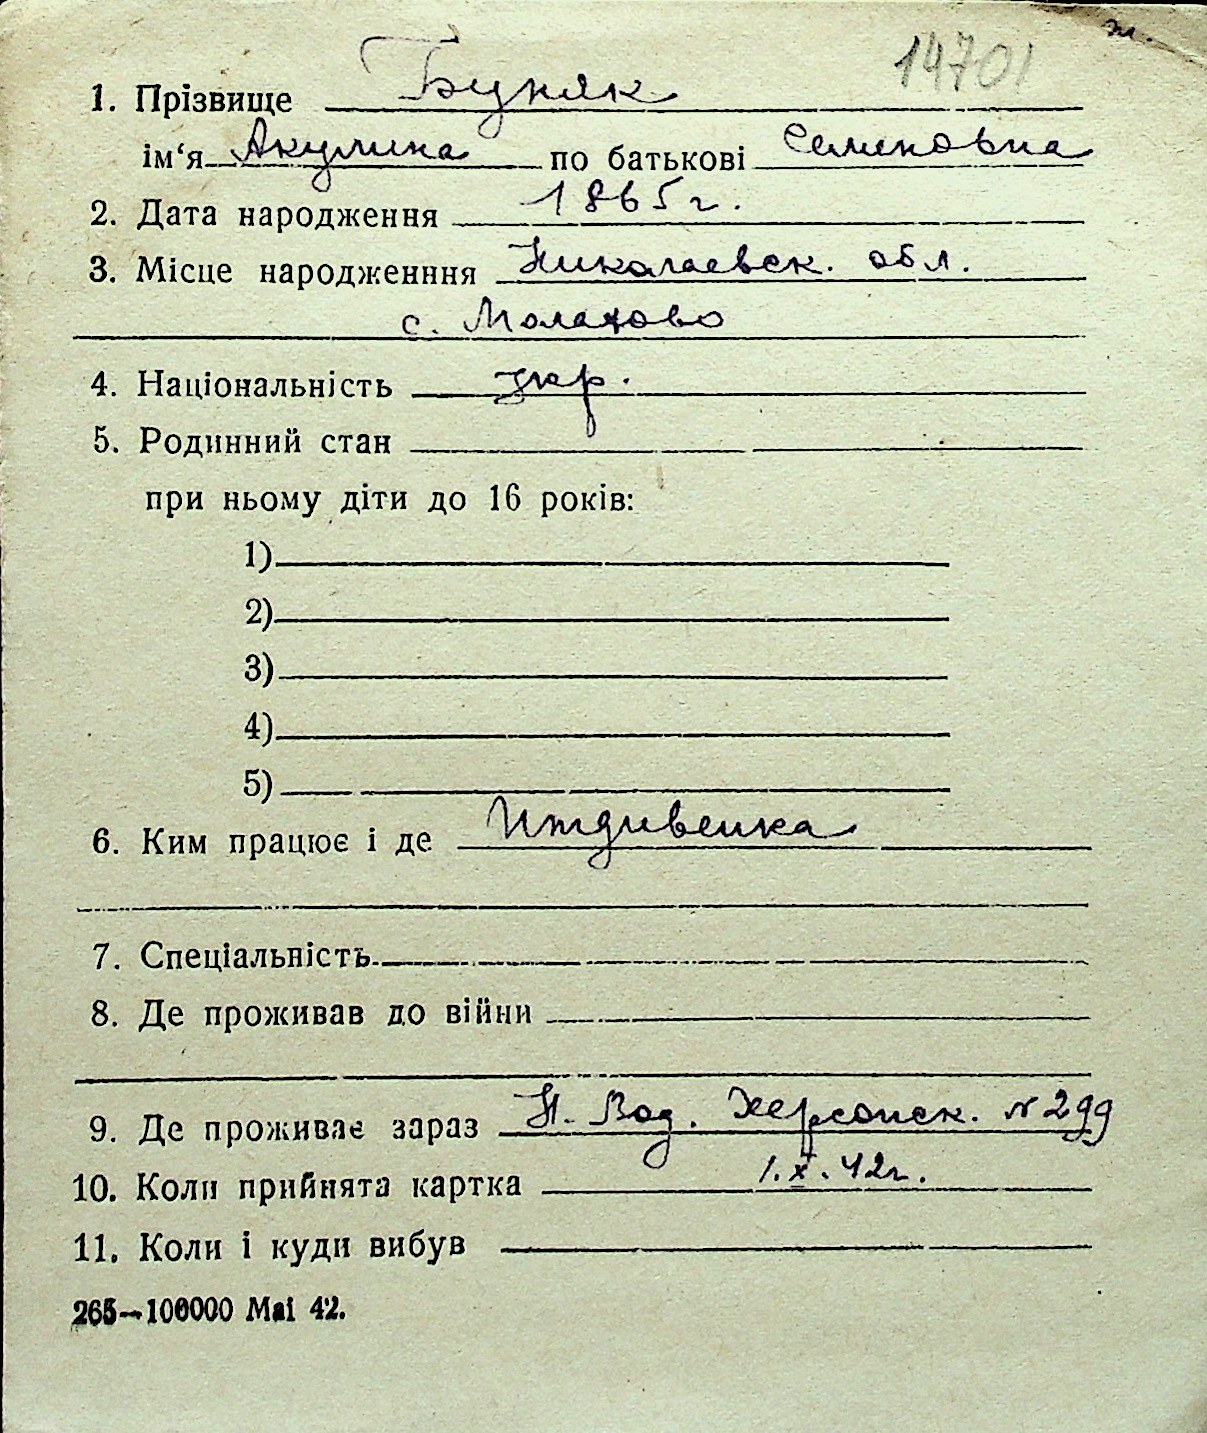 ж.
14701
1. Прізвище Буняк
ім‘я Акулина по батькові Семеновна
2. Дата народження 1865 г.
3. Місце народженння Николаевск. обл.
с. Малахово
4. Національність укр.
5. Родинний стан
при ньому діти до 16 років:
1)
2)
3)
4)
5)
6. Ким працює і де Иждивенка
7. Спеціальність
8. Де проживав до війни
9. Де проживає зараз Н. Вод. Херсонск. №299
10. Коли прийнята картка 1.X.42г.
11. Коли і куди вибув
265—100000 Mai 42.